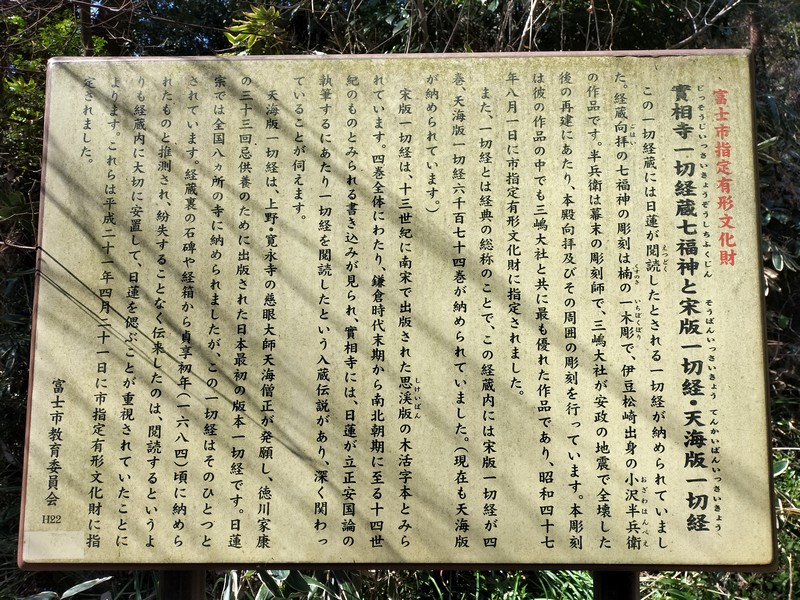 富士市指定有形文化財
實相寺一切経蔵七福神と宋版一切経・天海版一切経
じっそうじいっさいきょうぞうしちふくじん　そうばんいっさいきょう　てんかいばんいっさいきょう
この一切経蔵には日蓮が閲読したとされる一切経が納められていまし
た。経蔵向拝の七福神の彫刻は楠の一木彫で、伊豆松崎出身の小沢半兵衛
の作品です。半兵衛は幕末の彫刻師で、三嶋大社が安政の地震で全壊した
後の再建にあたり、本殿向拝及びその周囲の彫刻を行っています。本彫刻
は彼の作品の中でも三嶋大社と共に最も優れた作品であり、昭和四十七
年八月一日に市指定有形文化財に指定されました。
また、一切経とは経典の総称のことで、この経蔵内には宋版一切経が四
巻、天海版一切経六千百七十四巻が納められていました。（現在も天海版
が納められています。）
宋版一切経は、十三世紀に南宋で出版された思溪版の木活字本とみら
れています。四巻全体にわたり、鎌倉時代末期から南北朝期に至る十四世
紀のものとみられる書き込みが見られ、實相寺には、日蓮が立正安国論の
執筆するにあたり一切経を閲読したという入蔵伝説があり、深く関わっ
ていることが伺えます。
天海版一切経は、上野・寛永寺の慈眼大師天海僧正が発願し、徳川家康
の三十三回忌供養のために出版された日本最初の版本一切経です。日蓮
宗では全国八ヵ所の寺に納められましたが、この一切経はそのひとつと
されています。経蔵裏の石碑や経箱から貞享初年（一六八四）頃に納めら
れたものと推測され、紛失することなく伝来したのは、閲読するというよ
りも経蔵内に大切に安置して、日蓮を偲ぶことが重視されていたことに
よります。これらは平成二十一年四月二十一日に市指定有形文化財に指
定されました。
富士市教育委員会
H22